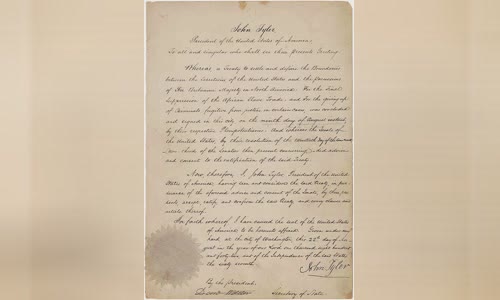 John Tyler
President of the United States of America,
To all and singular who shall see these presents Greeting
Whereas a Treaty to settle and define the Boundaries
between the Territories of the United States and the possessions
of Her Britannic Majesty in North America: For the final
Suppression of the African Slave Trade: and for the giving up
of Criminals fugitive from justice in certain cases, was concluded
and signed in this city on the ninth day of August instant,
by their respective Plenipotentiaries: And whereas the Senate of
the United States, by their resolution of the day of
of the Senators then present concurring, did advise
and consent to the ratification of the said Treaty.
Now, therefore, I, John Tyler, President of the United
States of America, having seen and considered the said treaty, in pur-
suance of the aforesaid advice and consent of the Senate, by these,
accept, ratify, and confirm the said treaty and every clause and
article thereof.
In faith whereof, I have caused the seal of the United States
of America to be hereunto affixed. Given under my
hand at the city of Washington, this 22d day of Au-
gust in the year of our Lord one thousand eight hundred
and forty two, and of the Independence of the said States
the sixty seventh.
John Tyler
By the president.
Secretary of State.